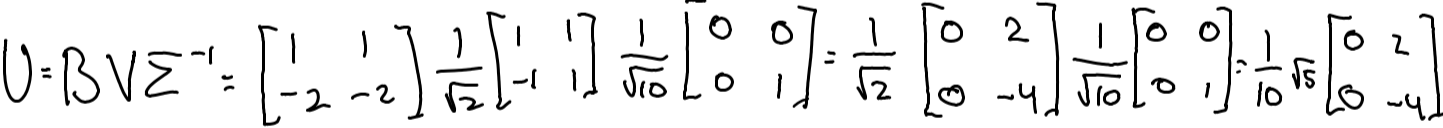 U = B V Σ⁻¹ = [1 1; -2 -2] 1/√2 [1 1; -1 1] 1/√10 [0 0; 0 1] = 1/√2 [0 2; 0 -4] 1/√10 [0 0; 0 1] = 1/10 √5 [0 2; 0 -4]